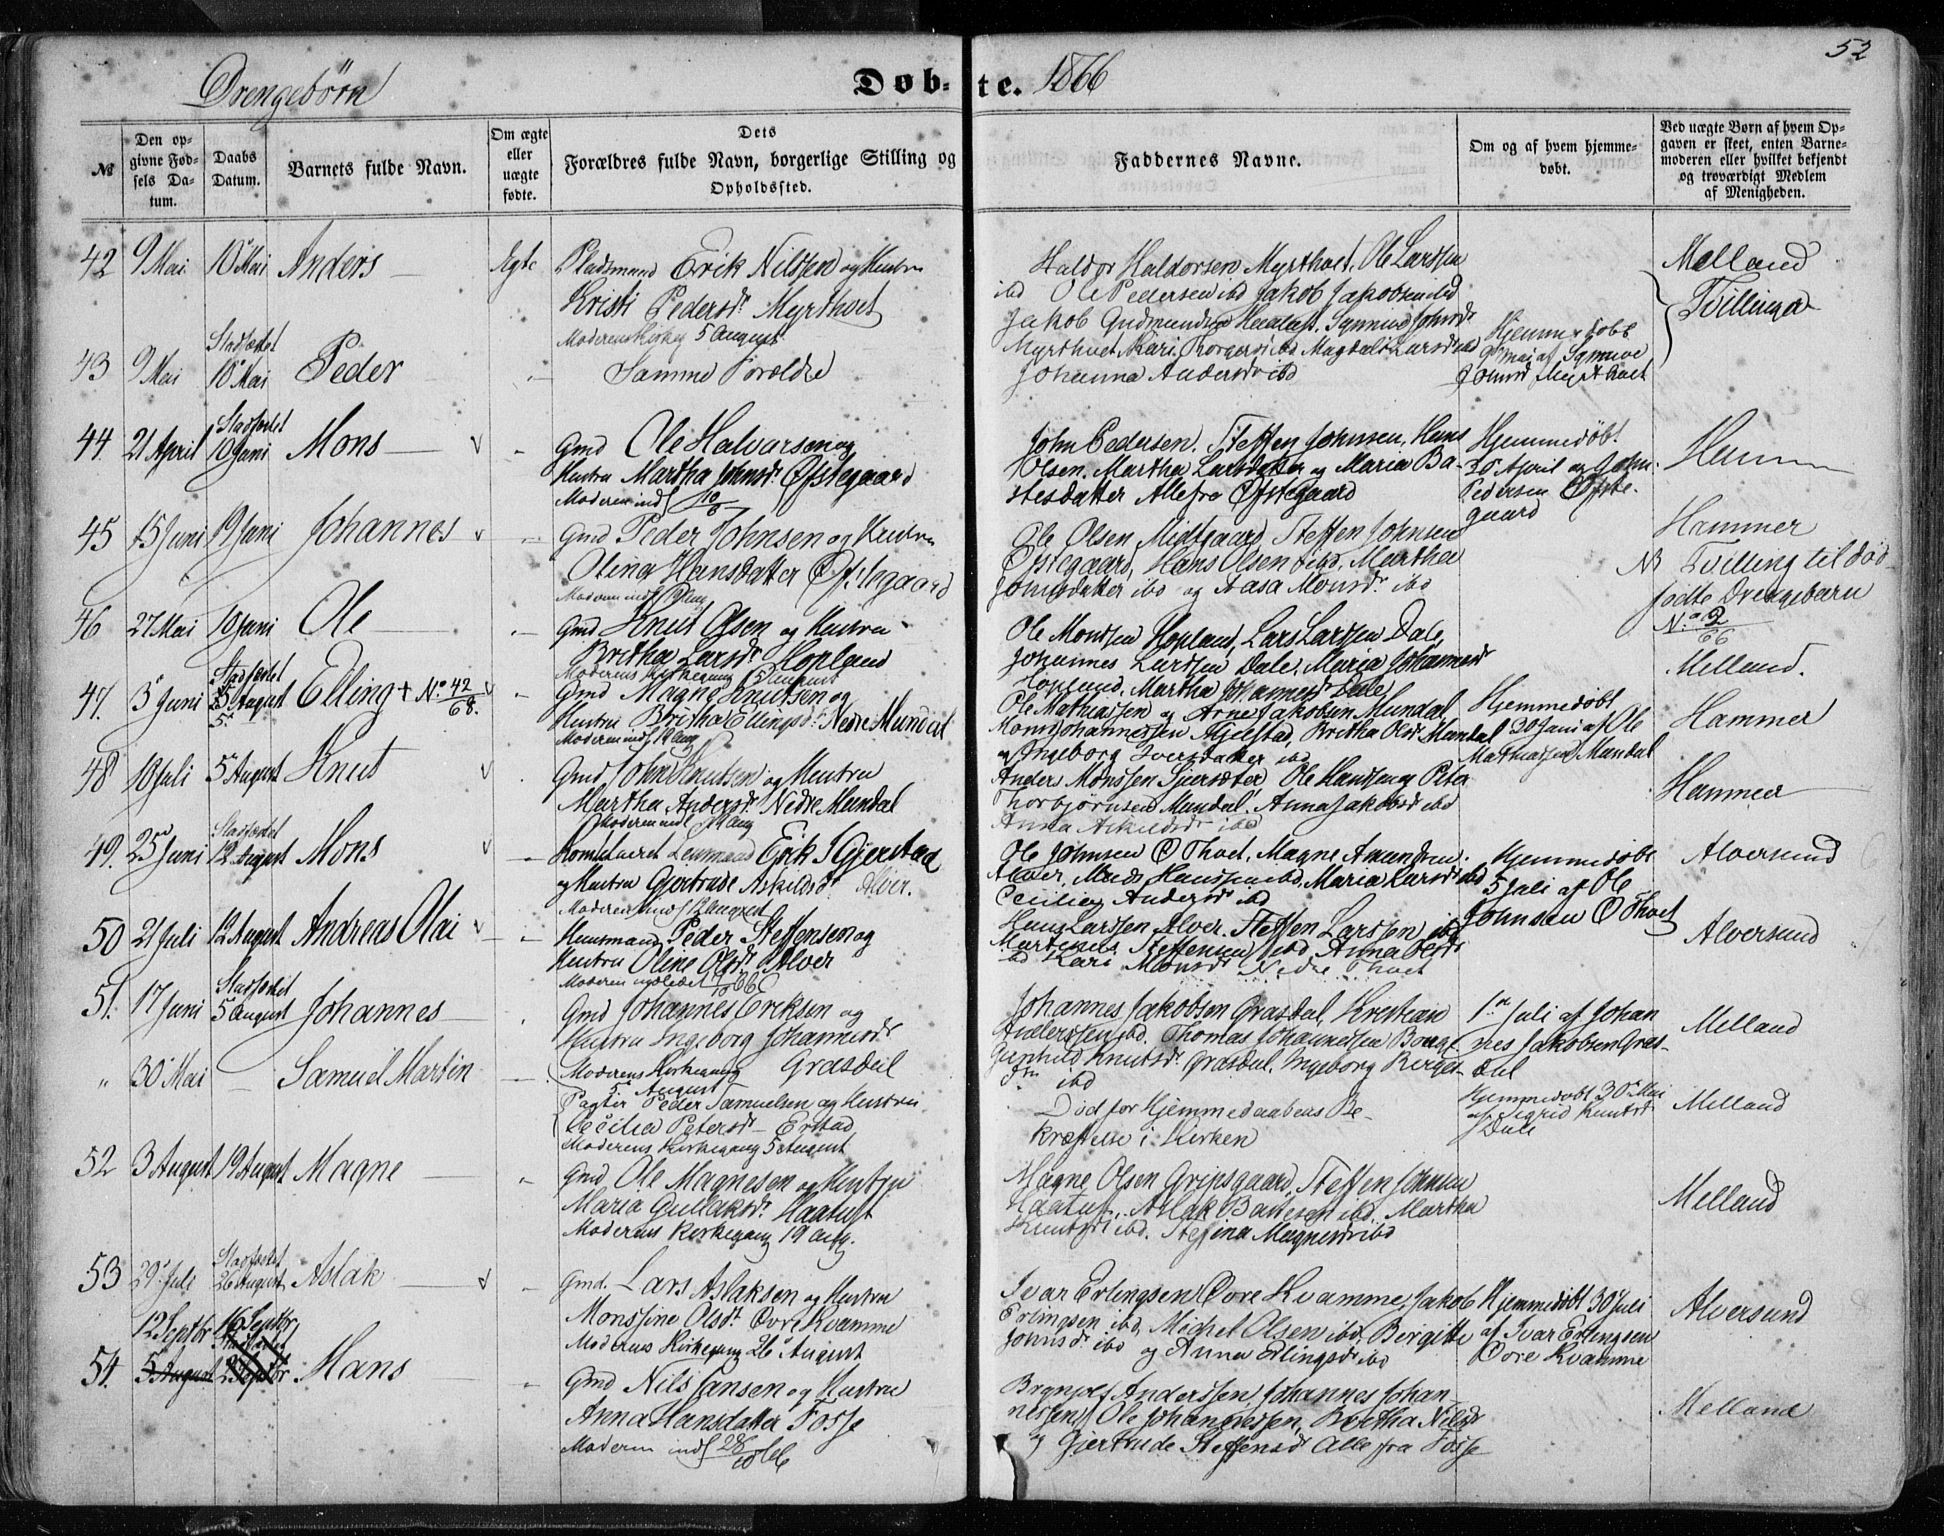 52
Drengebørn
Døb-te. 1866
№
Den op-
givne Fød-
sels Da-
tum.
Daabs
Datum.
Barnets fulde Navn.
Om ægte
eller
uægte
fødte.
Dets
Forældres fulde Navn, borgerlige Stilling og
Opholdssted.
Faddernes Navne.
Om og af hvem hjemme-
døbt.
Ved uægte Børn af hvem Op-
gaven er skeet, enten Barne-
moderen eller hvilket bekjendt
og troværdigt Medlem
af Menigheden.
42 9 Mai 10 Mai Anders Ægte
Pladsmand Erik Nilssen og Hustru
Kristi Pedersdr Myrthvet
Moderens Kirkeg 5 August
Haldor Haldorsen Myrthvet, Ole Larssen
ibd Ole Pedersen ibd Jakob Jakobsen ibd
Melland
Tvillinger
43 9 Mai Stadfæstet 10 Mai Peder
Samme Foreldre
Jakob Gudmundsen
Myrthvet, Kari ibd Magdale Larsdr ibd
Johanna Andersdr ibd
Hjemmedøbt
9 Mai af
Johnsdr Myrthvet
44 21 April Stadfæstet 10 Juni Mons
Gmd Ole Halvorsen og
Hustru Martha Johnsdr Øfstegaard
Moderen indl 10/6
John Pedersen, Steffen Johnsen, Hans
Olsen, Martha Larsdatter og Maria Ba-
stesdatter Alle fra Øfstegaard
Hjemmedøbt
30 April af John
Pedersen Øfste-
gaard
45 15 Juni 19 Juni Johannes
Gmd Peder Johnsen og Hustru
Olina Hansdatter Øfstegaard
Moderen indl 19 Aug
Ole Olsen Midtgaard, Steffen Johnsen
Øfstegaard, Hans Olsen ibd, Martha
Johnsdatter ibd og Aasa Monsdr ibd
Hammer
NB Tvilling til død-
fødte Drengebarn
No 2/66
46 27 Mai 10 Juni Ole
Gmd Knut Olsen og Hustru
Britha Larsdr Hopland
Moderens Kirkegang 5 August
Ole Monssen Hopland, Lars Larssen Dale,
Johannes Larssen Dale, Maria Johannesdr
Hopland, Martha Johannesdr Dale
Melland.
47. 3 Juni Stadfæstet 5 August Elling + No 42/68.
Gmd Magne Knutsen og
Hustru Britha Ellingsdr Nedre Mundal
Moderen indl 19 Aug
Ole Mathiassen og Arne Jakobsen Mundal
Mons Johannessen Fjelstad, Britha Olsdr Mundal
og Ingeborg Iversdatter ibd
Hjemmedøbt
20 Juni af Ole
Mathiassen Mundal
Hammer
48 10 Juli 5 August Knut
Gmd John Knutsen og Hustru
Martha Andersdr Nedre Mundal
Moderen indl 19 Aug
Anders Monssen, Ole Hanssen og Peter
Thorbjørnsen Mundal, Anna Jakobsdr ibd
Anna Askildsdr ibd
Hammer
49. 25 Juni Stadfæstet 12 August Mons
Lensmand Erik S Gjerstad
og Hustru Gjertrude Askildsdr Alver.
Moderen indl 12 August
Ole Johnsen Ø Thvet, Magne Amundsen
Alver, Mads Hanssen ibd, Maria Larsdr ibd
Cecilia Andersdr ibd
Hjemmedøbt
5 Juli af Ole
Johnsen Ø Thvet
Alversund
50 21 Juli 12 August Andreas Olai
Huusmand Peder Steffensen og
Hustru Oline Olsdr Alver
Hans Larssen Alver, Steffen Larssen ibd
Martenus Steffensen ibd, Anna
ibd Kari Monsdr Nedre Thvet
Alversund
51. 17 Juni Stadfæstet 5 August Johannes
Gmd Johannes Eriksen og
Hustru Ingeborg Johannesdr
Moderens Kirkegang Grasdal
5 August
Johannes Jakobsen Grasdal, Kristian
Anderssen ibd, Thomas Johannessen
Gunhild Knutsdr Grasdal, Ingeborg
ibd
1ste Juli af Johan
nes Jakobsen Gras-
dal
Melland
" 30 Mai Samuel Martin
Pagtir Peder Samuelsen og Hustru
Cecilia Petersdr Erstad
Moderens Kirkegang 5 August
Død før Hjemmedaabens Be-
kræftelse i Kirken
Hjemmedøbt 30 Mai
af Sigrid Knutsdr
Dale
Melland
52 3 August 19 August Magne
Gmd Ole Magnesen og Hustru
Maria Gullaksdr Haatuft
Moderens Kirkegang 19 Aug.
Magne Olsen Gripsgaard, Steffen Johnsen
Haatuft, Aslak Bastesen ibd, Martha
Knutsdr ibd. Steffina Magnesdr ibd
Melland
53 29 Juli Stadfæstet 26 August Aslak
Gmd. Lars Aslaksen og Hustru
Monssine Olsdr Øvre Kvamme
Moderens Kirkegang 26 August
Ivar Erlingsen Øvre Kvamme, Jakob
Erlingsen ibd, Michel Olsen ibd, Birgitte
Johnsdr ibd og Anna Erlingsdr ibd
Hjemmedøbt 30 Juli
af Ivar Erlingsen
Øvre Kvamme
Alversund
12 Septbr 16 Septbr
54. 5 August 2 Septbr Hans
Gmd Nils Hansen og Hustru
Anna Hansdatter Fosse
Moderen indl 28/10 66
Brynjolf Anderssen, Johannes Johan-
nessen, Ole Johannessen, Britha Nilsdr
og Gjertrude Steffensdr Alle fra Fosse
Melland